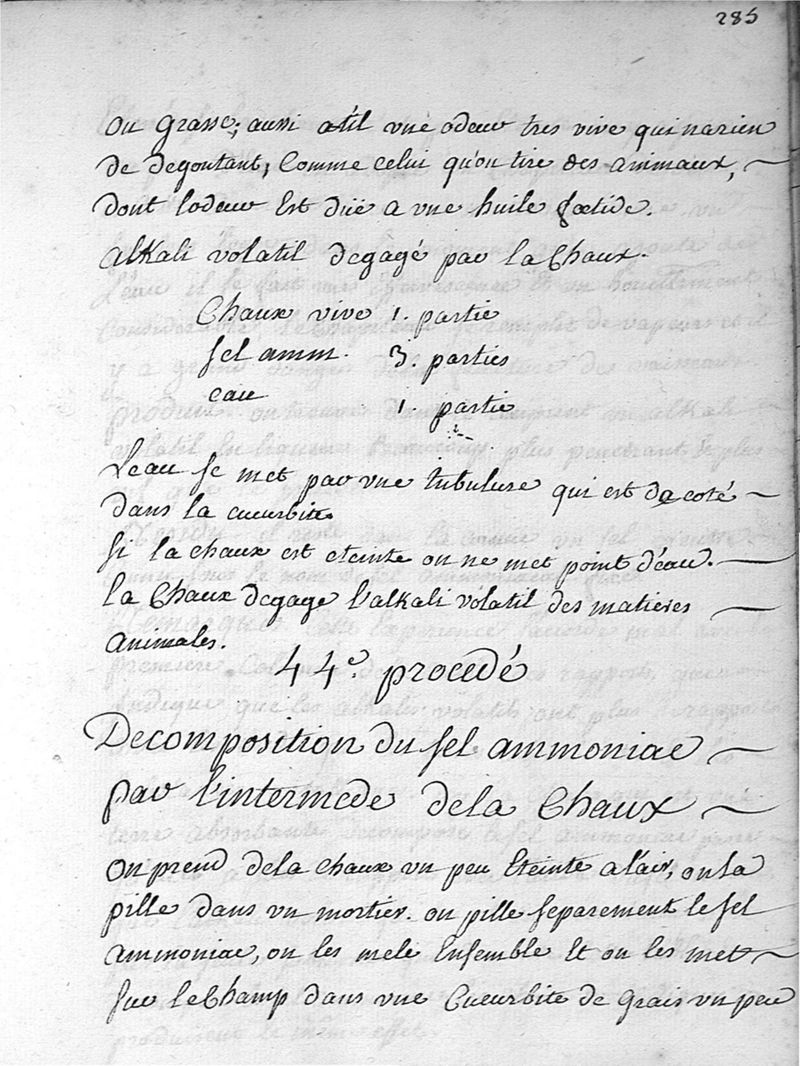 285
ou grasse; aussi atil vne odeur tres vive qui narien
de degoutant, Comme celui qu'on tire des animaux,
dont lodeur Est düe a vne huile foetide.
alkali volatil degagé par la Chaux.
Chaux vive 1. partie
sel amm. 3. parties
eau 1. partie
L'eau se met par vne tubulure qui est de coté
dans la cucurbite
si la chaux est eteinte on ne met point d'eau.
la Chaux degage l'alkali volatil des matieres
animales.
44e. procedé
Decomposition du sel ammoniac
par l'intermede dela Chaux
on prend dela chaux vn peu Eteinte a l'air, on la
pille dans vn mortier. on pille separement le sel
ammoniac, on les mele Ensemble Et on les met
sur le Champ dans vne Cucurbite de grais vn peu